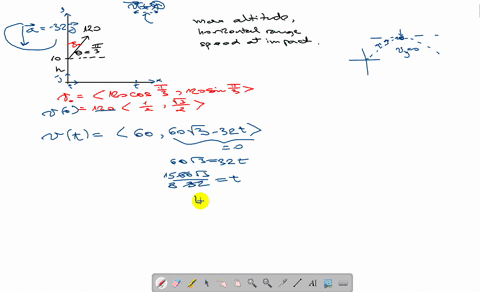 a⃗ = -32 j
120
π/3
10
h
t t x
max altitude,
horizontal range
speed at impact.
v₀ = < 120 cos π/3, 120 sin π/3 >
v(0) = 120 < 1/2, √3/2 >
v(t) = < 60, 60√3 - 32t >
= 0
60√3 = 32t
15 60√3 / 8 32 = t
4